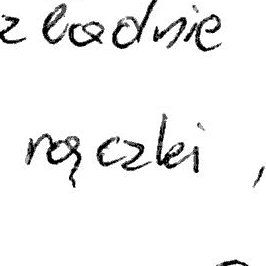 zładnie
rączki,